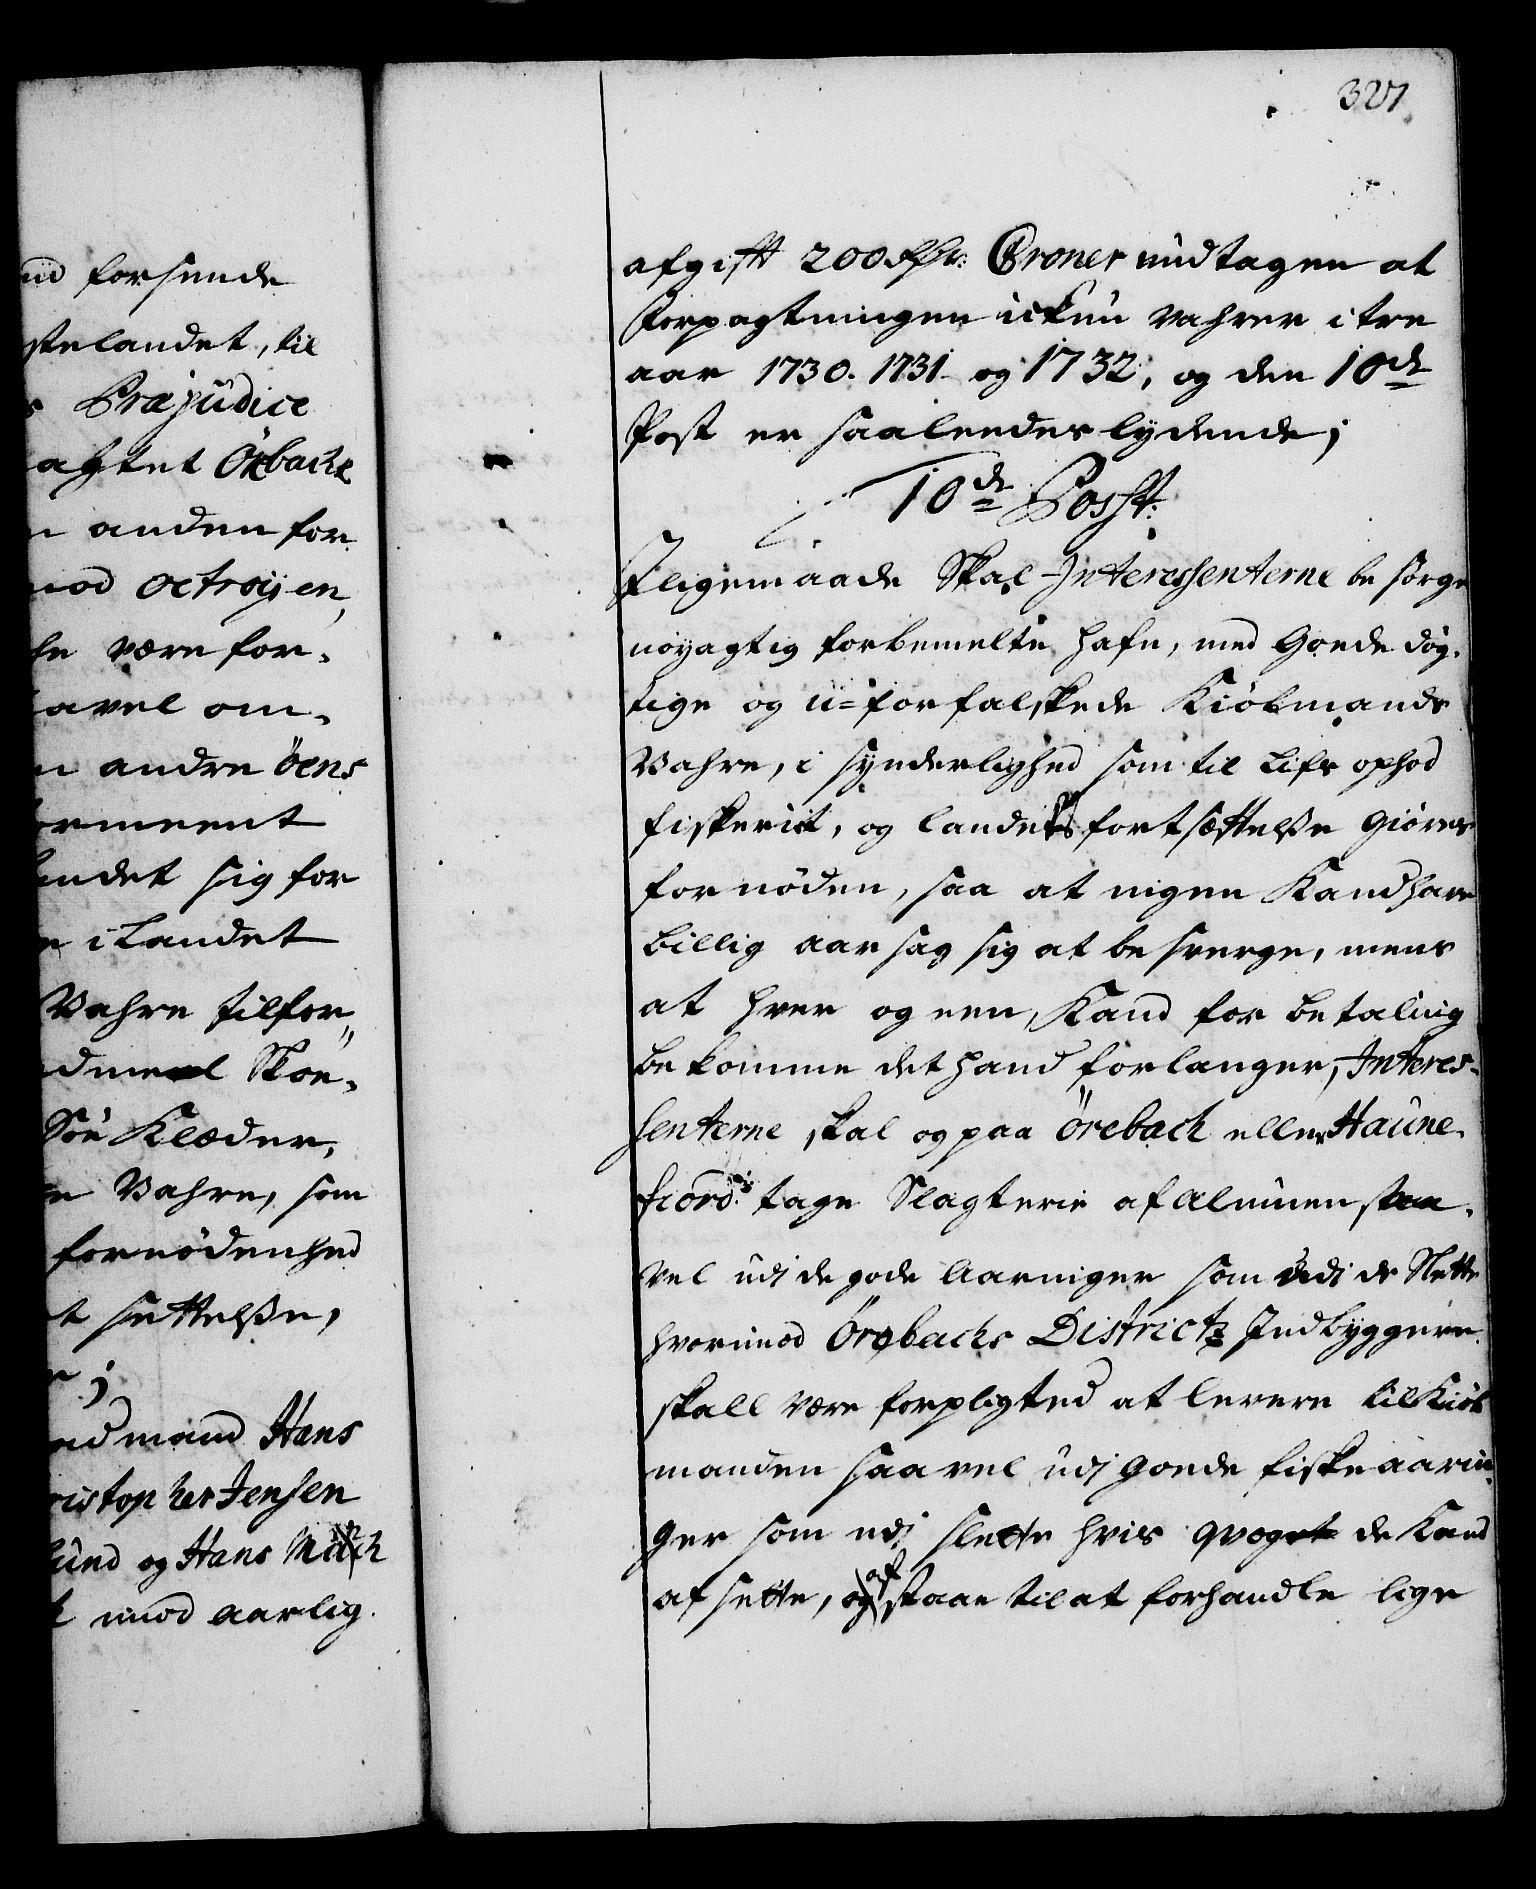 ud forsende
stelandet, til
s Præjudice
agtet Örbachs
n anden for-
mod octroyen,
he være for-
havel om-
n andre öens
ormeent
undet sig for
e i Landet
Vahre tilfor-
dmeel Skoe-
Söe Klæder,
e Vahre, som
fornödenhed
t settelße,
r;
admand Hans
ristopher Jensen
lund og Hans Munch
k imod aarlig
327
afgift 200 Rdr: Croner undtagen at
Forpagtningen ickun vahrer i tre
aar 1730. 1731 og 1732, og den 10de
Post er saaleedes lydende;
10de Posst:
Iligemaade Skal Interessenterne besörge
nöyagtig forbemelte hafn, med Goede dög-
tige og u-forfalskede Kiöbmands
Vahre, i synderlighed som til Lifs ophod
fiskeriet, og landets fortsættelße giöres
fornöden, saa at ingen Kand have
billig aarsag sig at besverge, mens
at hver og een, Kand for betaling
bekomme det hand forlanger, Interes-
senterne skal og paa Örebach eller Haune-
fiord tage Slagterie af Almuen saa-
vel udi de gode Aaringer som udi de Slette
hvorimod Örebachs Districtz Indbyggere
skall være forpligted at levere til Kiöb
manden saavel udi goede fiske aarin-
ger som udi slette hvis qvæget de Kand
afsette, og afstaae til at forhandle lige